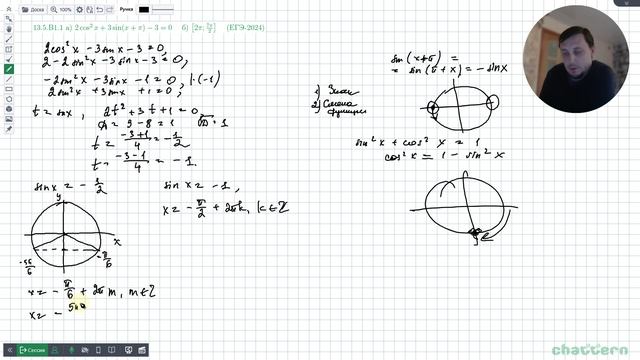 Доска
Ручка
13.5.В1.1 а) 2cos²x + 3sin(x + π) − 3 = 0 б) [2π; 7π/2] (ЕГЭ-2024)
2cos²x − 3sin x − 3 = 0,
2 − 2sin²x − 3sin x − 3 = 0,
−2sin²x − 3sin x − 1 = 0, |·(−1)
2sin²x + 3sin x + 1 = 0,
t = sin x, 2t² + 3t + 1 = 0
D = 9 − 8 = 1 √D = 1
t = (−3+1)/4 = −1/2
t = (−3−1)/4 = −1.
sin x = −1/2
y
x
−5π/6
−π/6
x = −π/6 + 2πm, m∈Z
x = −5π
sin x = −1,
x = −π/2 + 2πk, k∈Z
sin(x+π) =
= sin(π + x) = −sin x
1) Знак
2) Смена функции
sin²x + cos²x = 1
cos²x = 1 − sin²x
Сессия
chattern